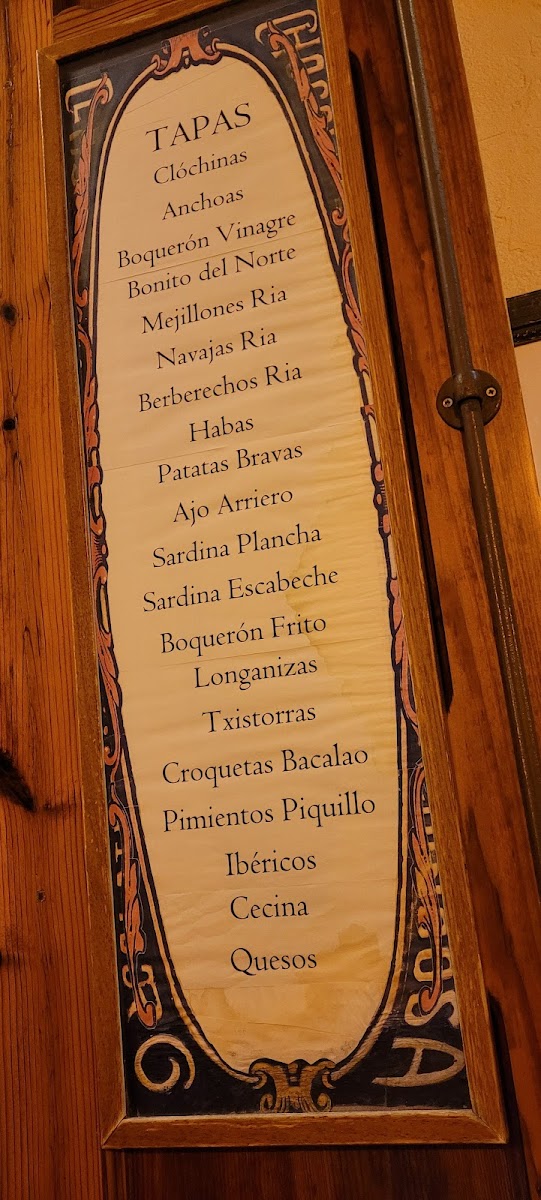 TAPAS
Clóchinas
Anchoas
Boquerón Vinagre
Bonito del Norte
Mejillones Ria
Navajas Ria
Berberechos Ria
Habas
Patatas Bravas
Ajo Arriero
Sardina Plancha
Sardina Escabeche
Boquerón Frito
Longanizas
Txistorras
Croquetas Bacalao
Pimientos Piquillo
Ibéricos
Cecina
Quesos